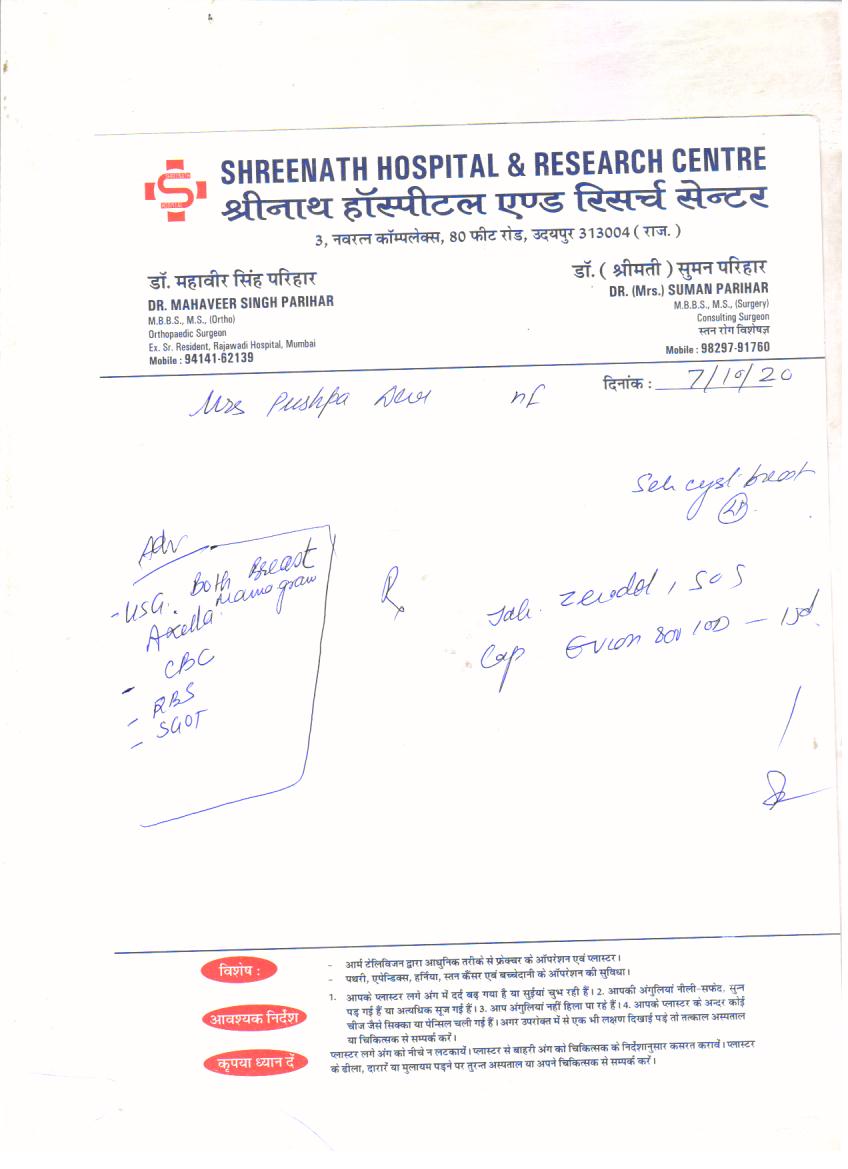 SHREENATH HOSPITAL & RESEARCH CENTRE
श्रीनाथ हॉस्पीटल एण्ड रिसर्च सेन्टर
3, नवरत्न कॉम्पलेक्स, 80 फीट रोड, उदयपुर 313004 ( राज. )
डॉ. महावीर सिंह परिहार
DR. MAHAVEER SINGH PARIHAR
M.B.B.S., M.S., (Ortho)
Orthopaedic Surgeon
Ex. Sr. Resident, Rajawadi Hospital, Mumbai
Mobile : 94141-62139
डॉ. ( श्रीमती ) सुमन परिहार
DR. (Mrs.) SUMAN PARIHAR
M.B.B.S., M.S., (Surgery)
Consulting Surgeon
स्तन रोग विशेषज्ञ
Mobile : 98297-91760
दिनांक : 7/10/20
Mrs Pushpa Devi
Seb cyst breast
Adv
- USG. Both Breast
Axella Mamogram
- CBC
- RBS
- SGOT
Rx
Tab. Zerodol, SOS
Cap Evion
विशेष :
- आर्म टेलिविजन द्वारा आधुनिक तरीके से फ्रेक्चर के ऑपरेशन एवं प्लास्टर।
- पथरी, एपेन्डिक्स, हर्निया, स्तन कैंसर एवं बच्चेदानी के ऑपरेशन की सुविधा।
आवश्यक निर्देश
1. आपके प्लास्टर लगे अंग में दर्द बढ़ गया है या सुईयां चुभ रही हैं। 2. आपकी अंगुलियां नीली-सफेद, सुन्न
पड़ गई हैं या अत्यधिक सूज गई हैं। 3. आप अंगुलियां नहीं हिला पा रहे हैं। 4. आपके प्लास्टर के अन्दर कोई
चीज जैसे सिक्का या पेन्सिल चली गई हैं। अगर उपरोक्त में से एक भी लक्षण दिखाई पड़े तो तत्काल अस्पताल
या चिकित्सक से सम्पर्क करें।
कृपया ध्यान दें
प्लास्टर लगे अंग को नीचे न लटकायें। प्लास्टर से बाहरी अंग को चिकित्सक के निर्देशानुसार कसरत करावें। प्लास्टर
के ढीला, दारारें या मुलायम पड़ने पर तुरन्त अस्पताल या अपने चिकित्सक से सम्पर्क करें।